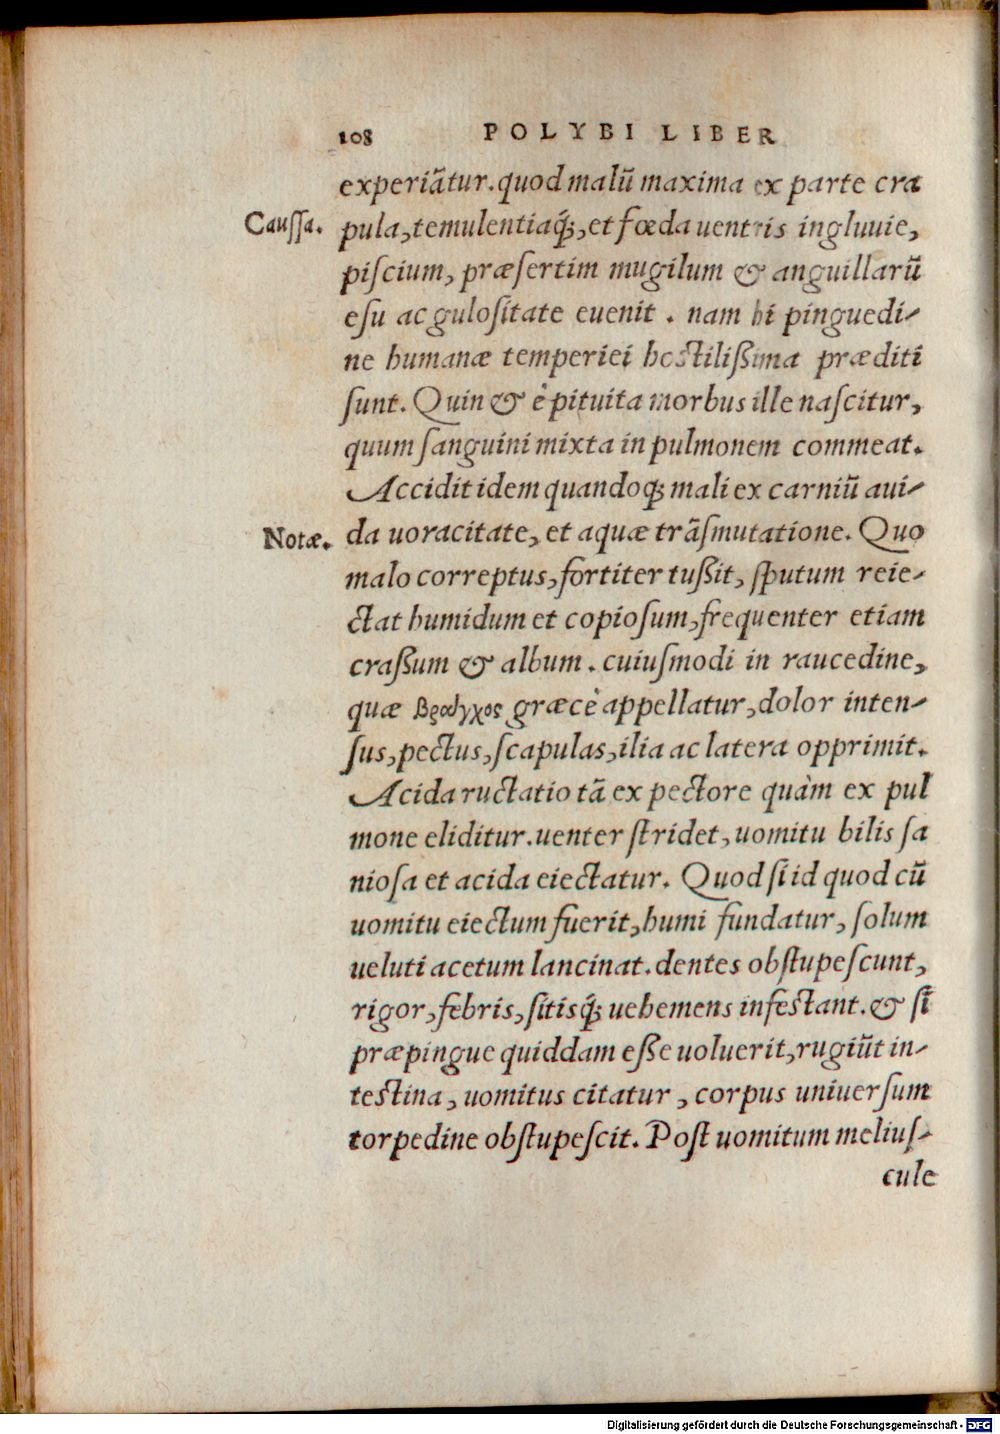 108 POLYBI LIBER
experiãtur. quod malũ maxima ex parte cra
Caussa. pula, temulentiaq́;, et fœda uentris ingluuie,
piscium, præsertim mugilum & anguillarũ
esu ac gulositate euenit . nam hi pinguedi-
ne humanæ temperiei hostilißima præditi
sunt. Quin & è pituita morbus ille nascitur,
quum sanguini mixta in pulmonem commeat.
Accidit idem quandoq; mali ex carniũ aui-
Notæ. da uoracitate, et aquæ trãsmutatione. Quo
malo correptus, fortiter tußit, sputum reie-
ctat humidum et copiosum, frequenter etiam
craßum & album . cuiusmodi in raucedine,
quæ βράγχος græcè appellatur, dolor inten-
sus, pectus, scapulas, ilia ac latera opprimit.
Acida ructatio tã ex pectore quàm ex pul
mone eliditur. uenter stridet, uomitu bilis sa
niosa et acida eiectatur. Quod si id quod cũ
uomitu eiectum fuerit, humi fundatur, solum
ueluti acetum lancinat. dentes obstupescunt,
rigor, febris, sitisq́; uehemens infestant. & si
præpingue quiddam eße uoluerit, rugiũt in-
testina, uomitus citatur , corpus uniuersum
torpedine obstupescit. Post uomitum melius-
cule
Digitalisierung gefördert durch die Deutsche Forschungsgemeinschaft - DFG